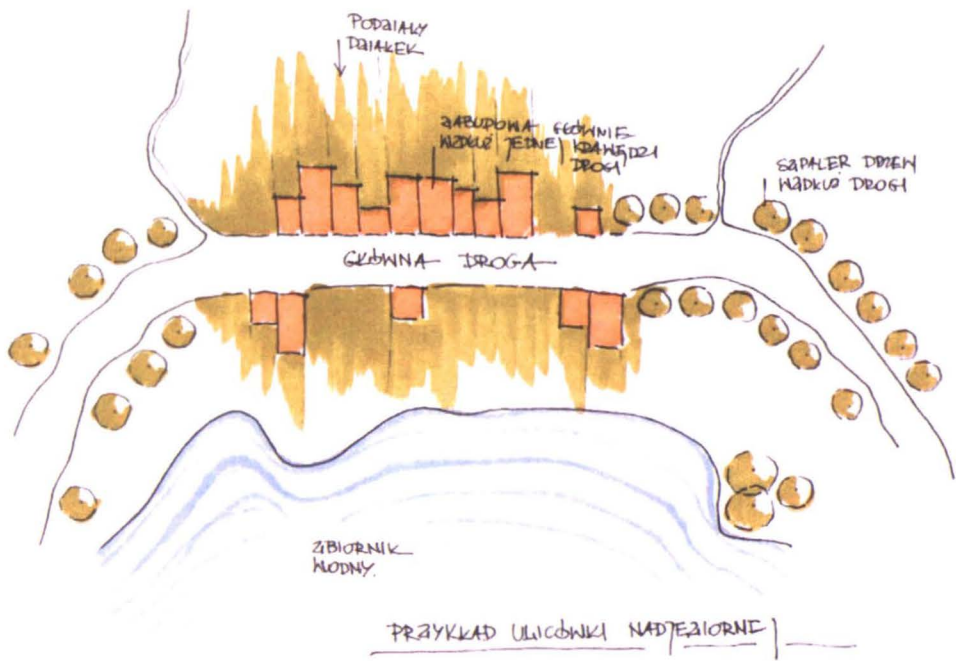 PODZIAŁY
DZIAŁEK
ZABUDOWA GŁÓWNIE
WZDŁUŻ JEDNEJ KRAWĘDZI
DROGI
SZPALER DRZEW
WZDŁUŻ DROGI
GŁÓWNA DROGA
ZBIORNIK
WODNY.
PRZYKŁAD ULICÓWKI NADJEZIORNEJ